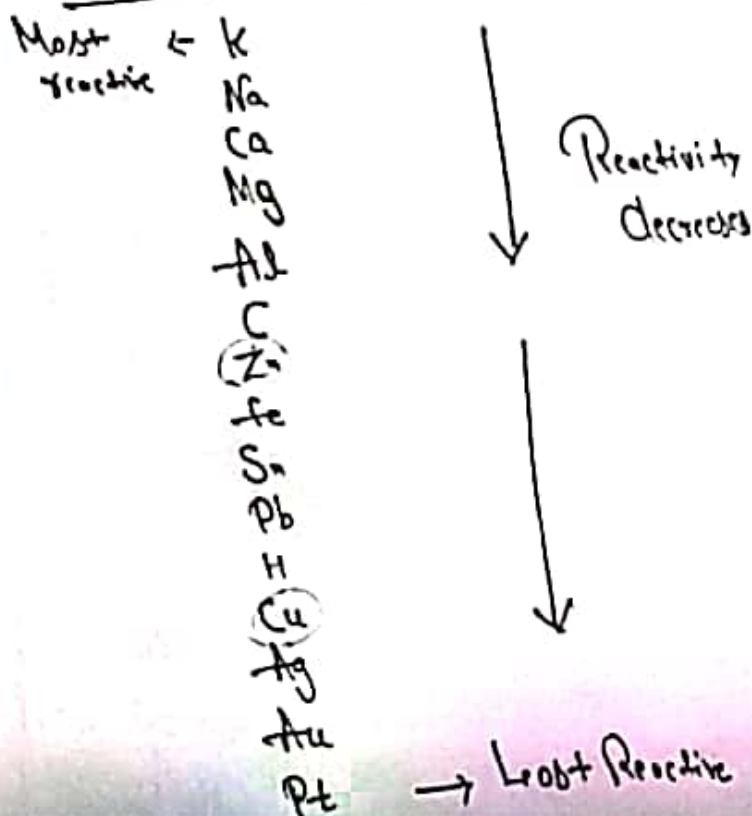 Most ← K
reactive
Na
Ca
Mg
Al
C
Zn
Fe
Sn
Pb
H
Cu
Ag
Au
Pt → Least Reactive
Reactivity
decreases